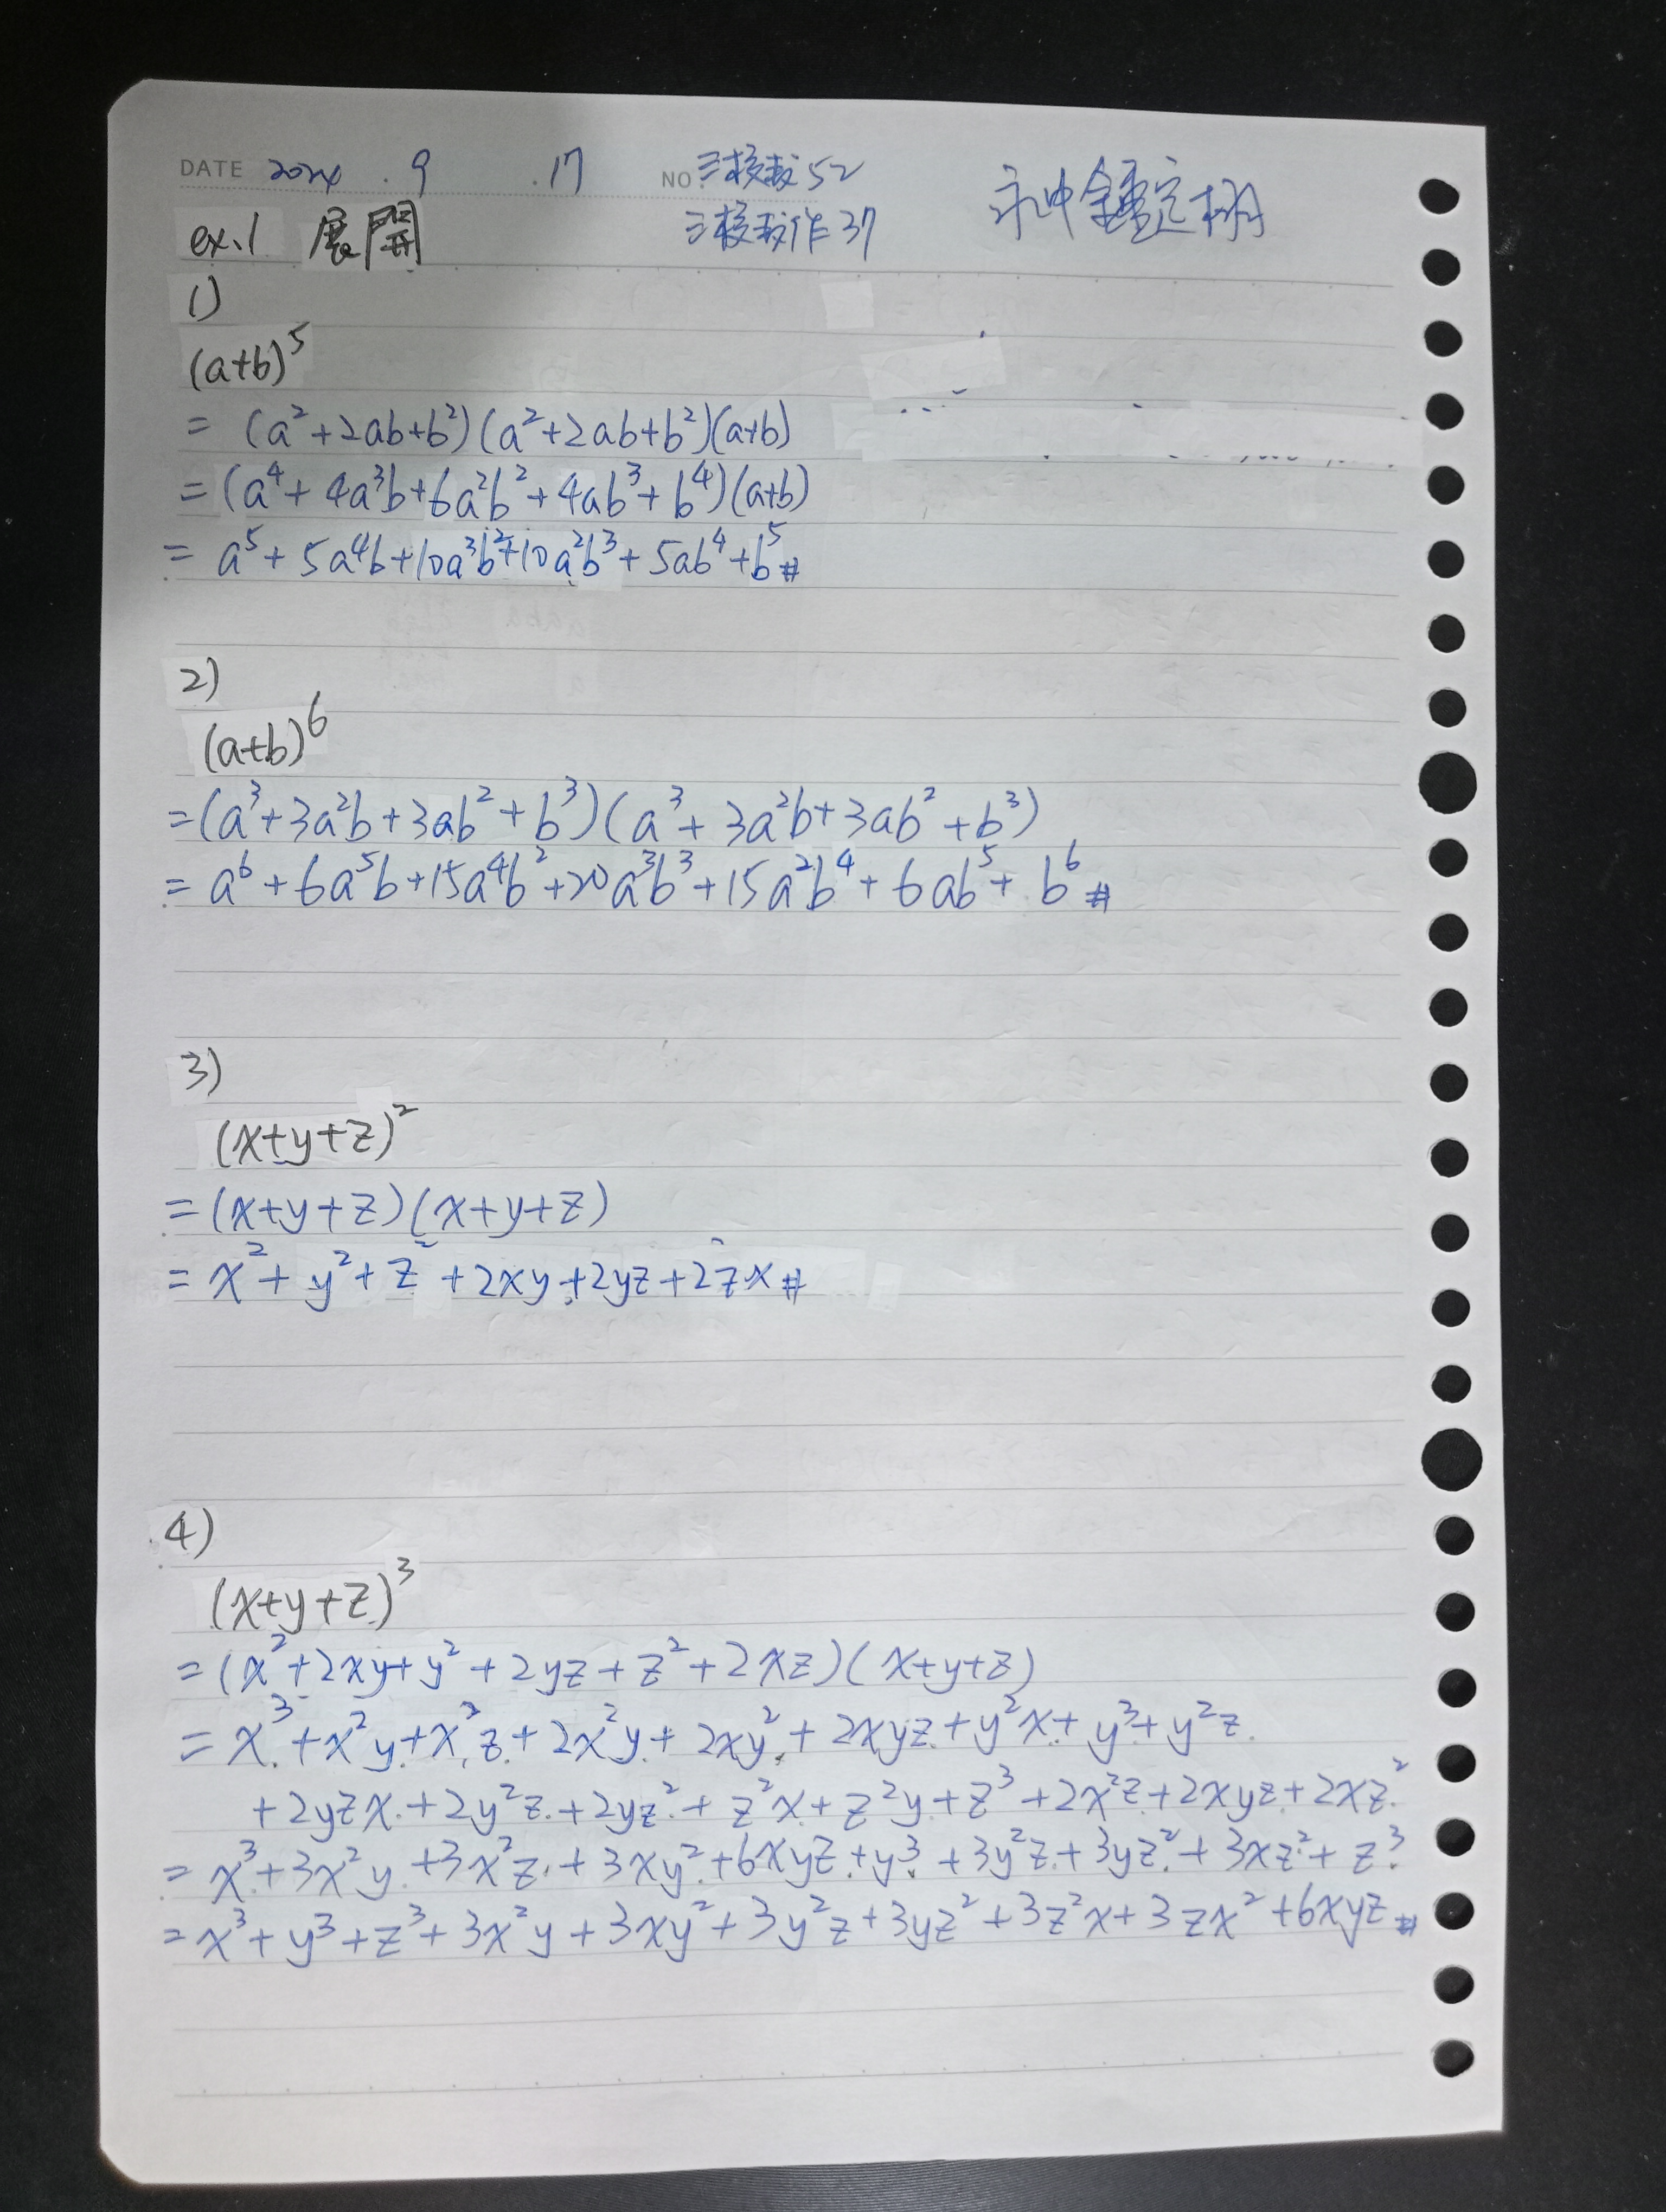 DATE 2024 . 9 . 17 NO. 三校表 52
三校表作 37
ex.1 展開
1)
(a+b)⁵
= (a²+2ab+b²)(a²+2ab+b²)(a+b)
= (a⁴+4a³b+6a²b²+4ab³+b⁴)(a+b)
= a⁵+5a⁴b+10a³b²+10a²b³+5ab⁴+b⁵#
2)
(a+b)⁶
=(a³+3a²b+3ab²+b³)(a³+3a²b+3ab²+b³)
= a⁶+6a⁵b+15a⁴b²+20a³b³+15a²b⁴+6ab⁵+b⁶#
3)
(x+y+z)²
=(x+y+z)(x+y+z)
= x²+y²+z²+2xy+2yz+2zx#
4)
(x+y+z)³
=(x²+2xy+y²+2yz+z²+2xz)(x+y+z)
= x³+x²y+x²z+2x²y+2xy²+2xyz+y²x+y³+y²z
+2yzx+2y²z+2yz²+z²x+z²y+z³+2x²z+2xyz+2xz²
= x³+3x²y+3x²z+3xy²+6xyz+y³+3y²z+3yz²+3xz²+z³
= x³+y³+z³+3x²y+3xy²+3y²z+3yz²+3z²x+3zx²+6xyz#